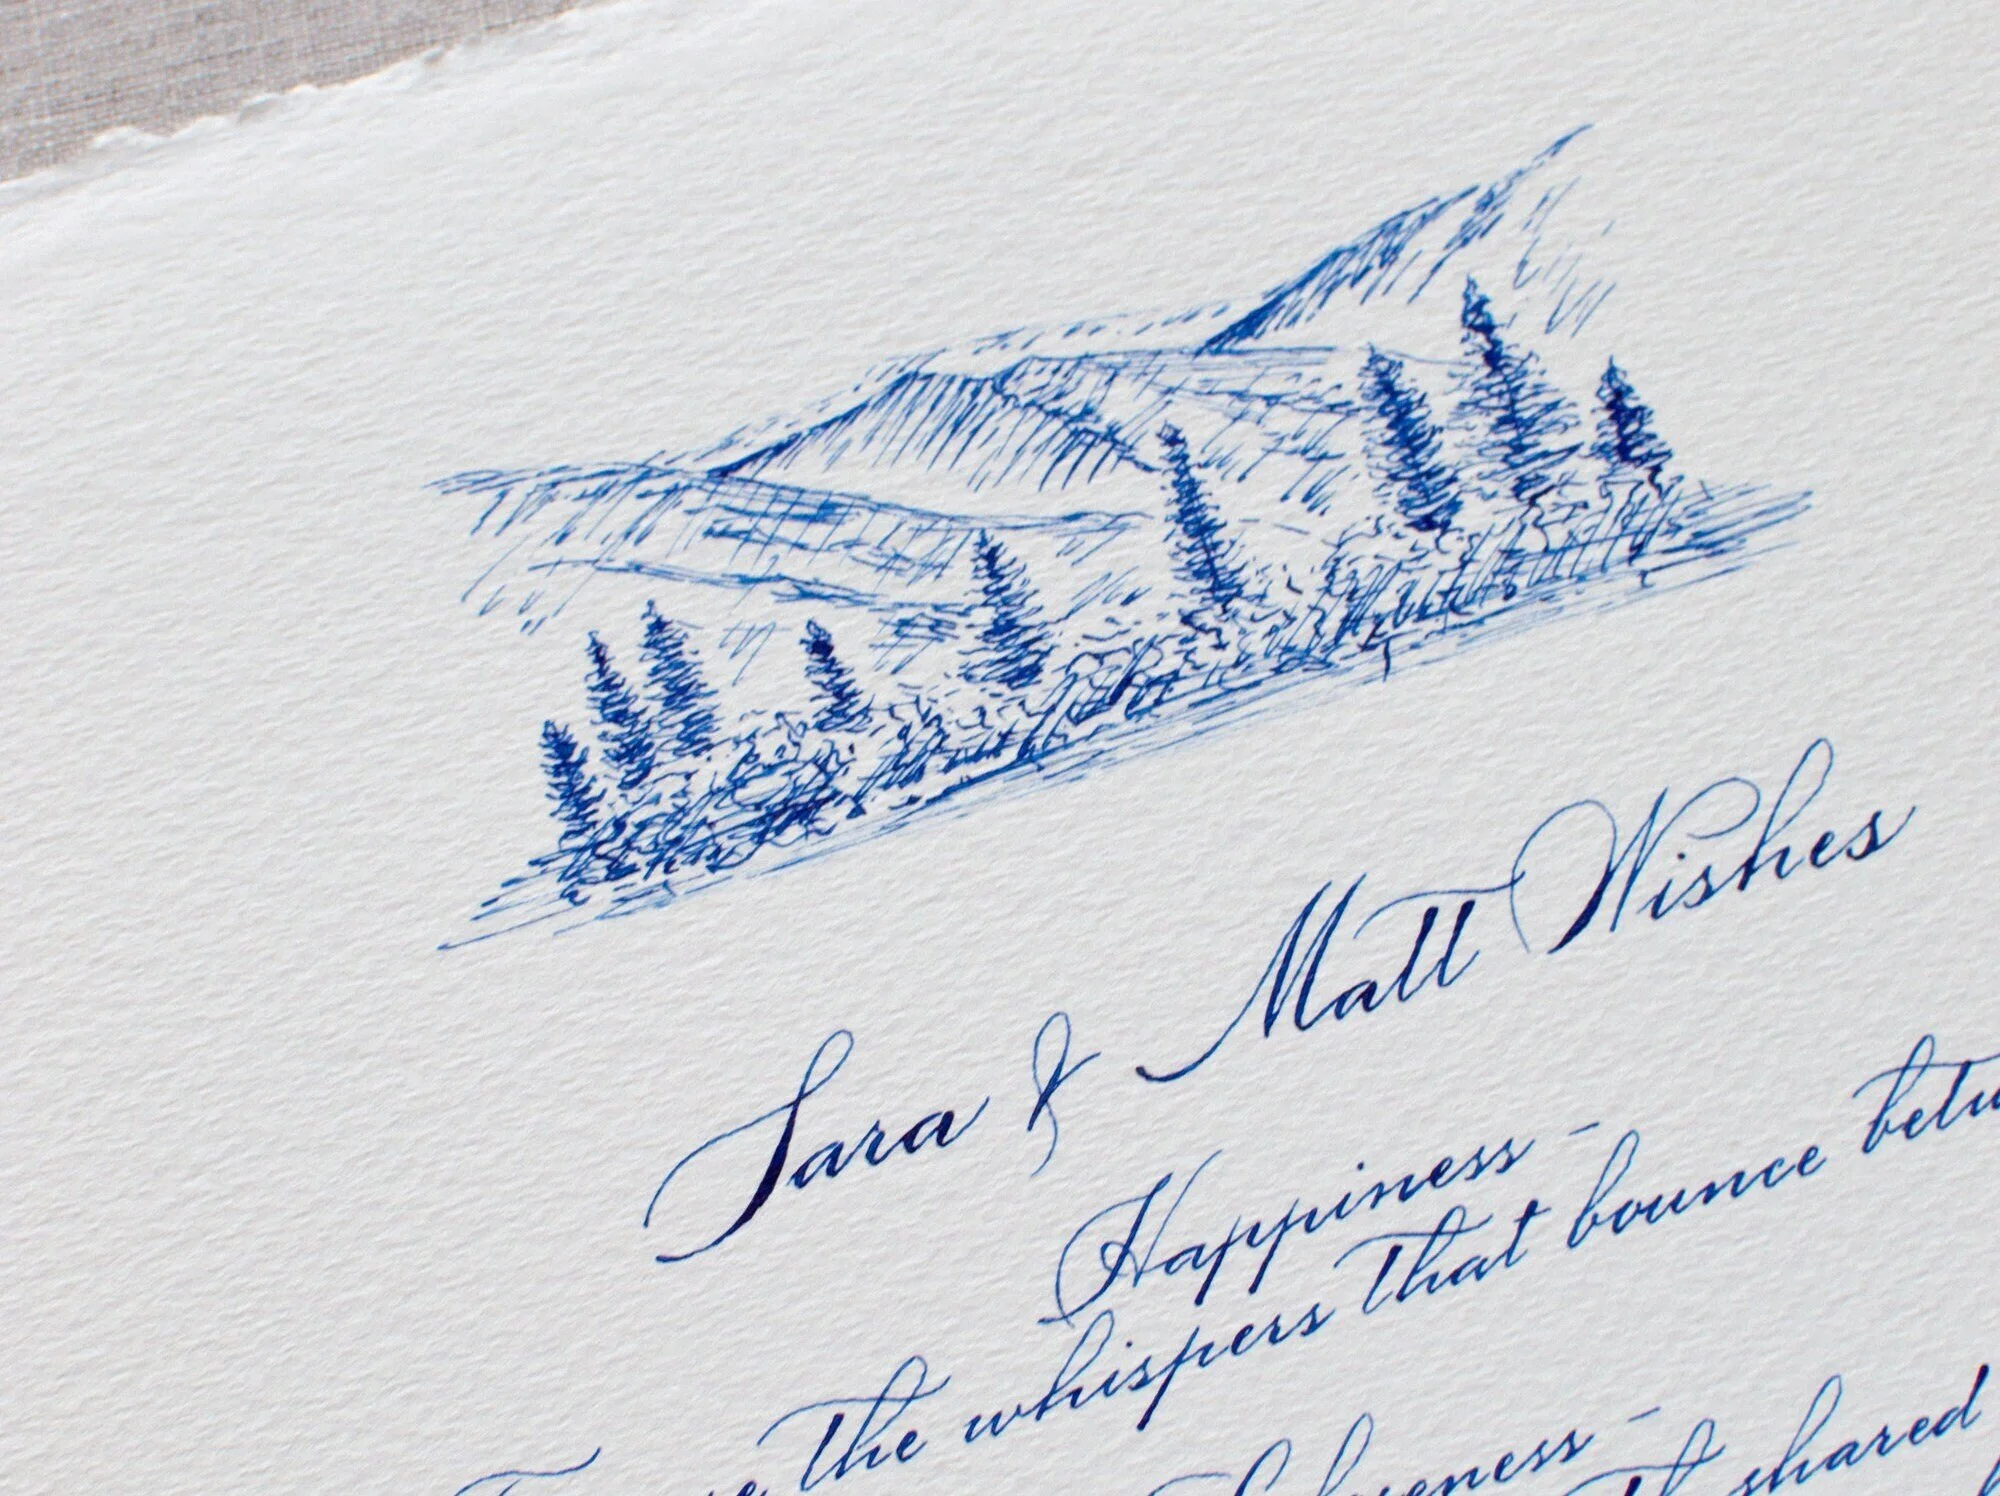 Sara & Matt Wishes
Happiness -
the whispers that bounce
shared